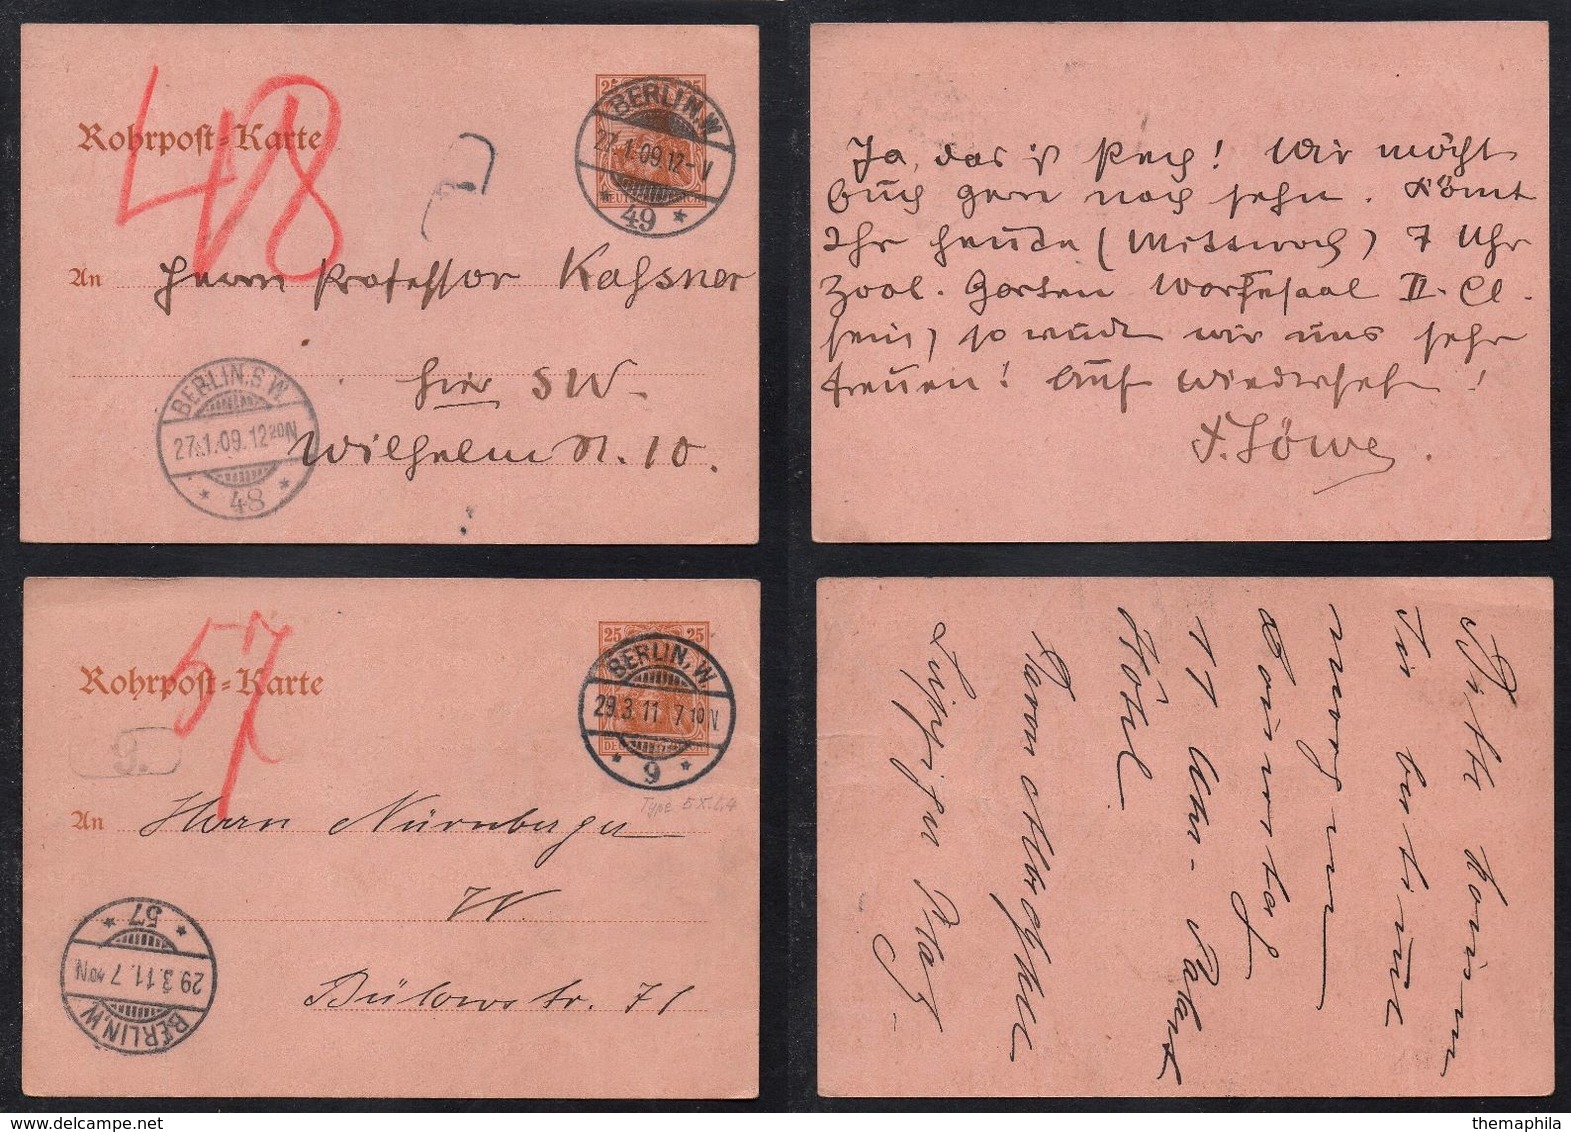 Rohrpost-Karte
48
25 25
DEUTSCHES REICH
BERLIN, W.
27.1.09.12-V
* 49 *
An Herrn Professor Kaßner
hier SW.
Wilhelmstr. 10.
BERLIN, S W.
27.1.09.12 20 N
* 48 *
Ja, das ist Pech! Wir möcht
Euch gern noch sehn. Könnt
Ihr heute (Mittwoch) 7 Uhr
Zool. Garten Wartesaal II. Cl.
sein, so würden wir uns sehr
freuen! Auf Wiedersehn!
F. Löwe.
Rohrpost-Karte
57
25 25
DEUTSCHES REICH
BERLIN, W.
29.3.11. 7 10 N
* 9 *
Type
9.
An Herrn Nürnberger
W
Bülowstr. 71
BERLIN W
29.3.11. 7 40 N
* 57 *
Bitte kommen
Sie bestimmt
morgen
Donnerstag
11 Uhr - Palast
Hôtel
Leipziger Platz -
themaphila